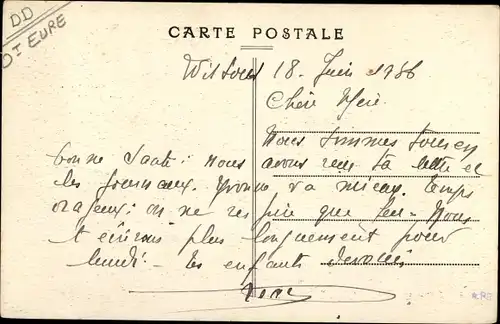 DD
Dt EURE
CARTE POSTALE
18 Juin 1936
Chère Mère.
Nous sommes tous en
bonne santé. Nous avons reçu ta lettre et
les journaux. Yvonne va mieux. Temps
orageux: on ne res que peu. Nous
t'écrirons plus longuement pour
lundi. Tes enfants dévoués